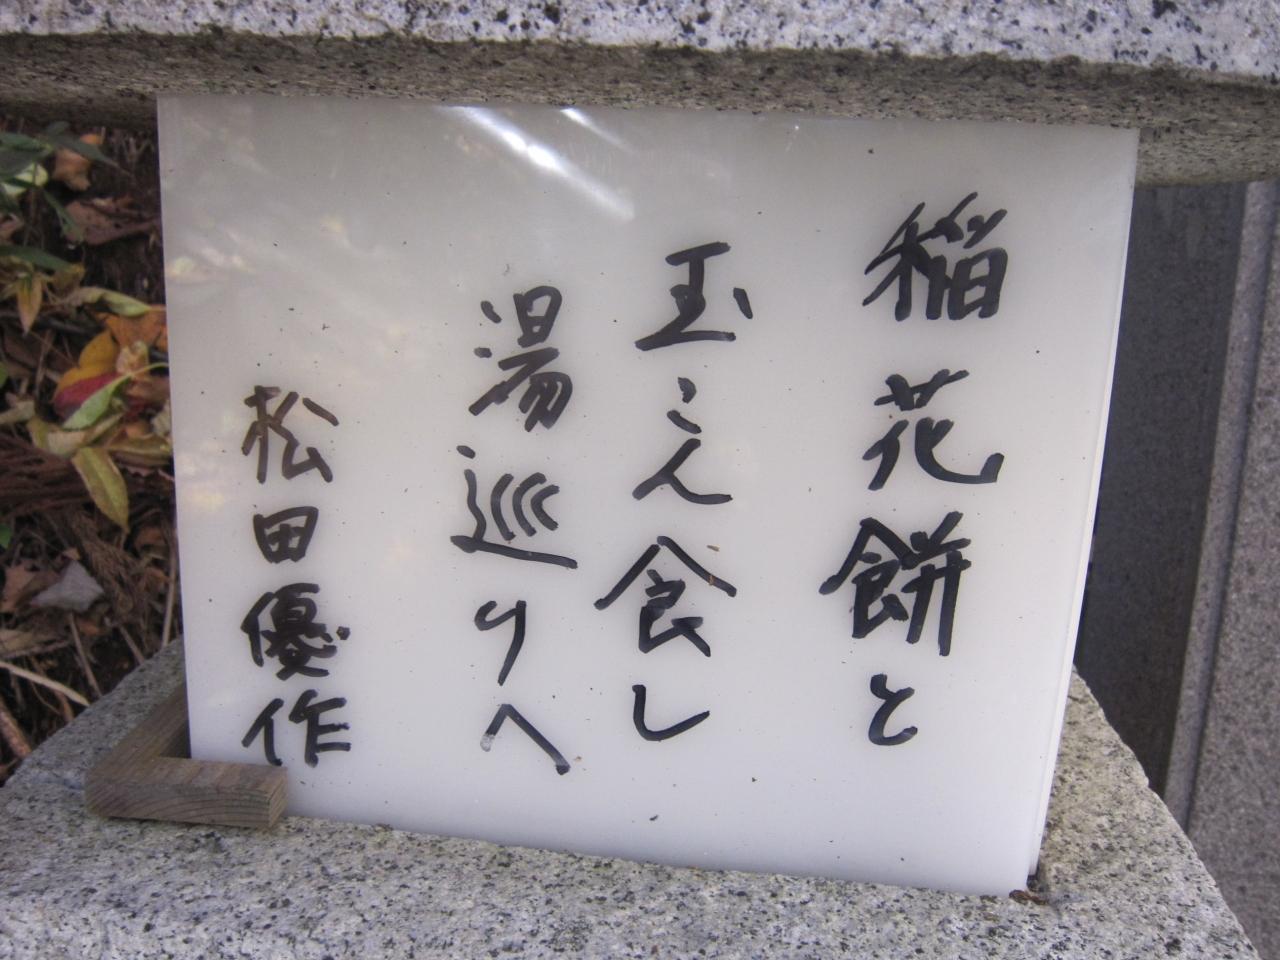 稲花餅と
玉こん食し
湯巡りへ
松田優作